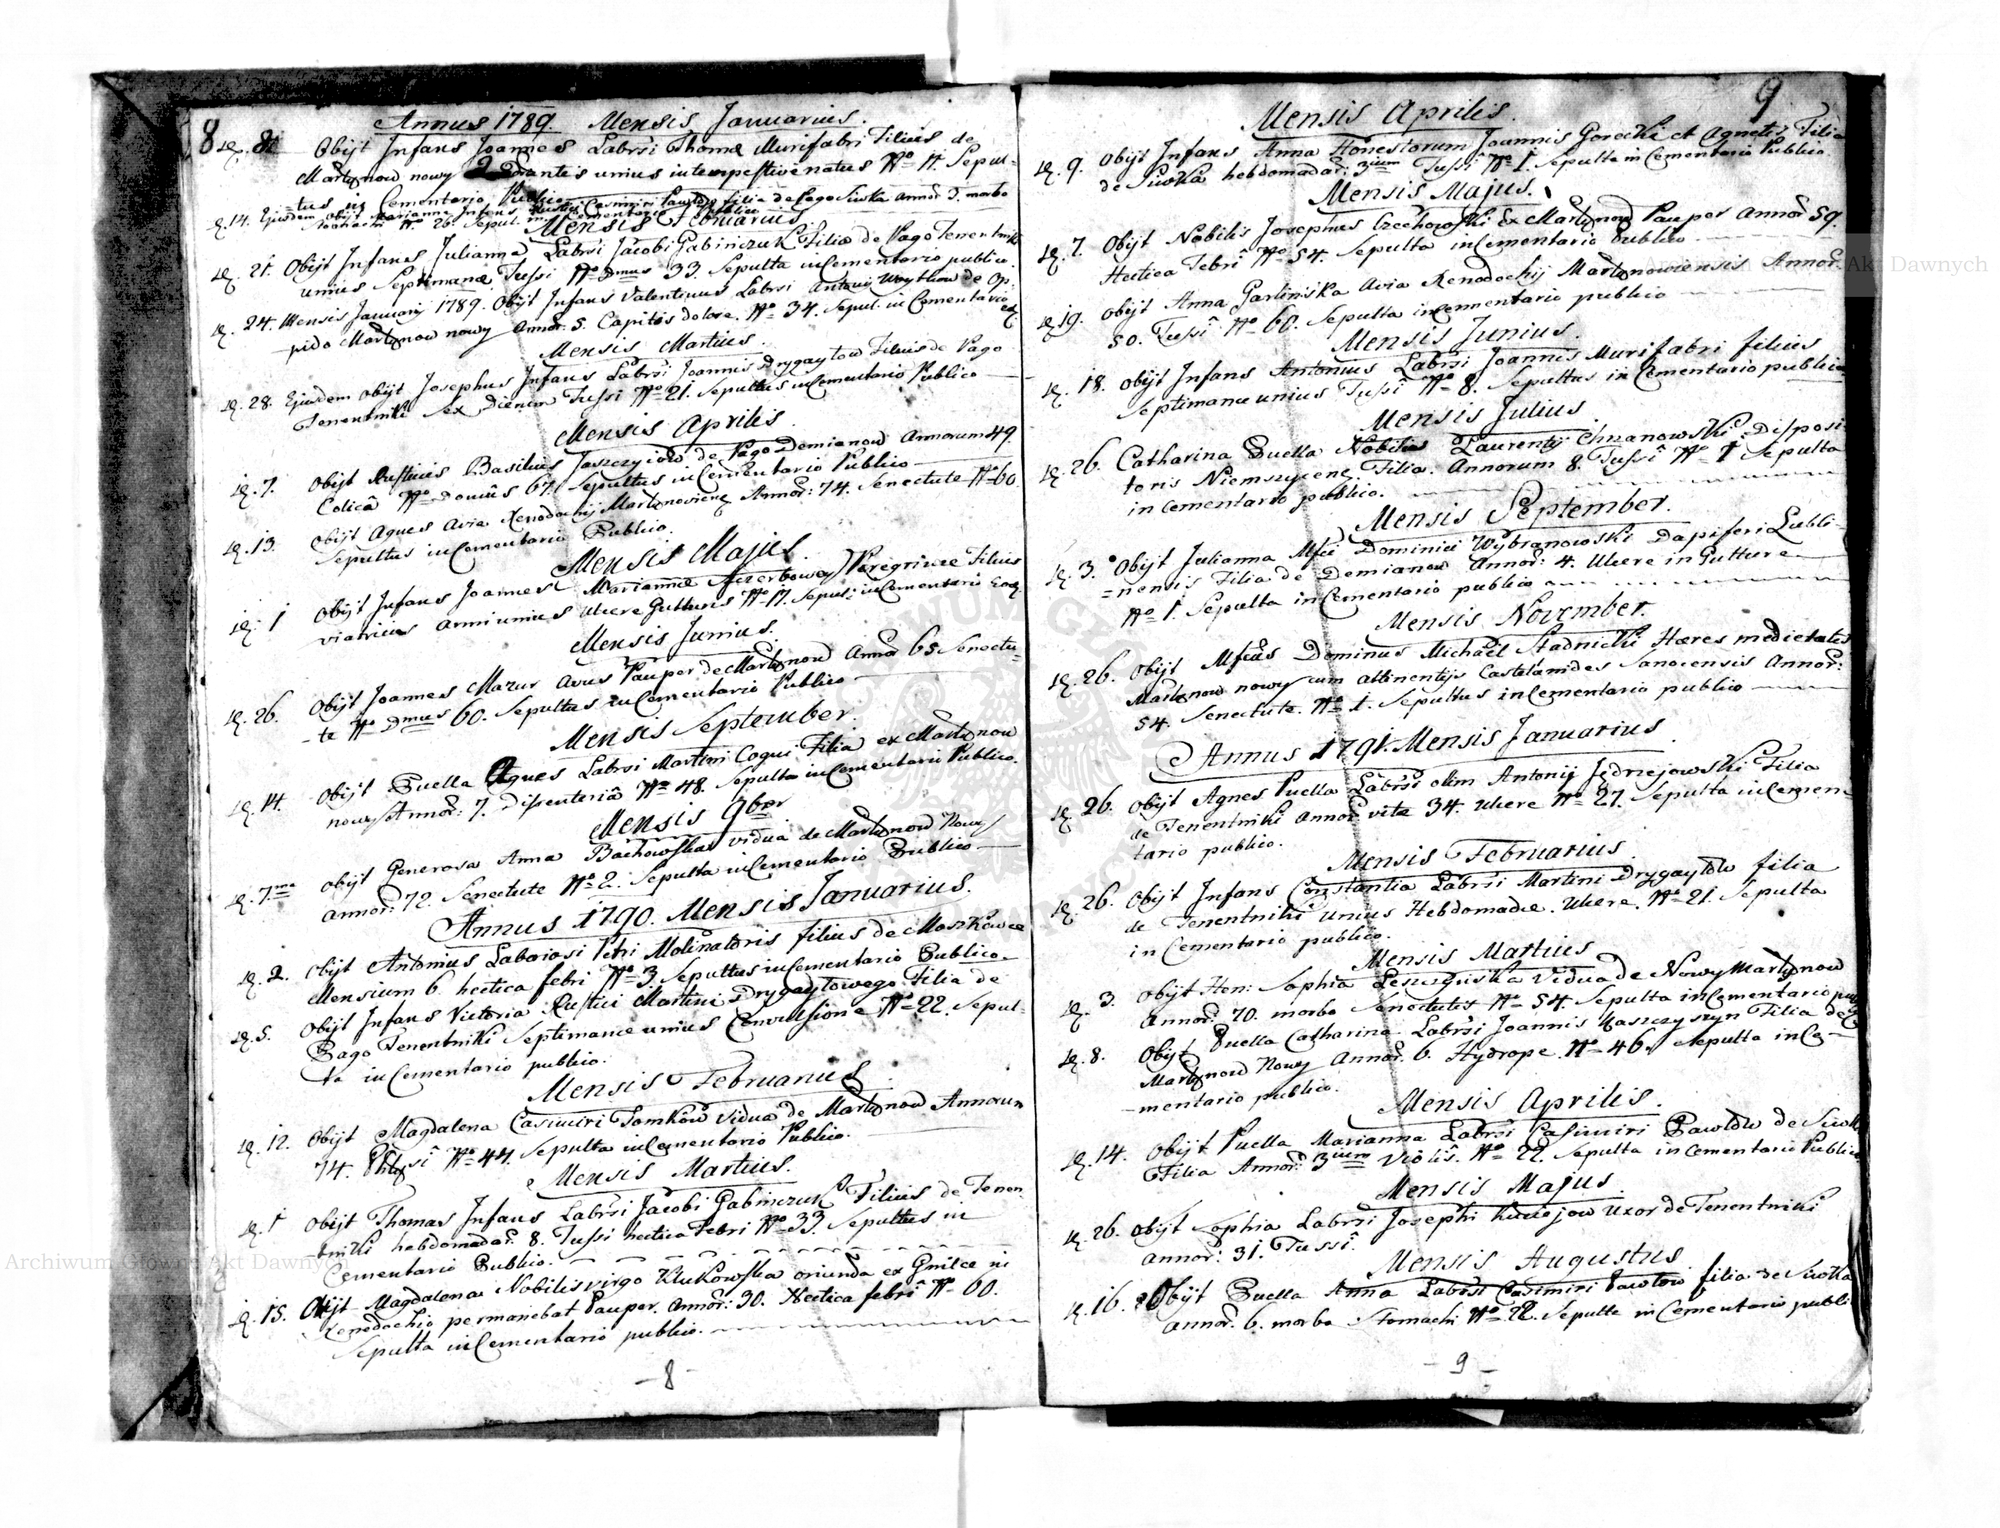 8
Annus 1789. Mensis Januarius.
Obijt Infans Joannes Labrsi Thomæ Murifabri Filius de
Martynow nowy unius intempestive natus Nro 11. Sepul-
-tus in Cementario Publico
d. 14. Ejusdem obijt Marianna Infans Rustici Casimiri Pawłow filia de Pago Siwka Annor 3. morbo
Stomachi Nro 26. Sepul. in Cementerio Publico
Mensis Februarius.
d. 21. Obijt Infans Julianna Labrsi Jacobi Gabinczuk Filia de Pago Tenentniki
unius Septimanæ Tussi Nro Dmus 33. Sepulta in Cementario publico.
d. 24. Mensis Januarij 1789. Obijt Infans Valentinus Labrsi Antonij Woytkow de Op-
pido Martynow nowy Annor. 5. Capitis dolore. Nro 34. Sepul. in Cementario eod.
Mensis Martius.
d. 28. Ejusdem obijt Josephus Infans Labrsi Joannis Drygaytow Filius de Pago
Tenentniki sex Dierum Tussi Nro 21. Sepultus in Cementario Publico
Mensis Aprilis
d. 7. Obijt Rusticus Basilius Jaszczyiow de Pago Demianow Annorum 49.
Colica Nro Domus 67. Sepultus in Cementario Publico
d. 13. Obijt Agnes Avia Xenodochij Martynoviens Annor: 74. Senectute Nro 60.
Sepultus in Cementario Publico.
Mensis Majus.
d. 1 Obijt Infans Joannes Mariannæ Peregrinæ Filius
viatricis anni unius Ulcere Gutturis Nro 17. Sepul: in Cementario Eod.
Mensis Junius.
d. 26. Obijt Joannes Mazur Avus Pauper de Martynow Annor 65 Senectu-
-te Nro Dmus 60. Sepultus in Cementario Publico
Mensis September.
d. 14. Obijt Puella Agnes Labrsi Martini Coqui Filia ex Martynow
nowy Annor: 7. Disenteriâ Nro 48. Sepulta in Cementario Publico.
Mensis 9ber
d. 7ma Obijt Generosa Anna Bachowska vidua de Martynow Nowy
annor: 72. Senectute Nro 2. Sepulta in Cementario Publico
Annus 1790. Mensis Januarius.
d. 2. Obijt Antonius Laboriosi Petri Molinatoris filius de Moszkowce
Mensium 6. hectica febri Nro 3. Sepultus in Cementario Publico
d. 5. Obijt Infans Victoria Rustici Martini Drygaytowego Filia de
Pago Tenentniki Septimanæ unius Convulsione Nro 22. Sepul-
ta in Cementario publico.
Mensis Februarius
d. 12. Obijt Magdalena Casimiri Tomkow Vidua de Martynow Annorum
74. Nro 44. Sepulta in Cementario Publico.
Mensis Martius.
d. 1 Obijt Thomas Infans Labrsi Jacobi Gabinczuk Filius de Tenen-
tniki hebdomadar. 8. Tussi hectica Febri Nro 33 Sepultus in
Cementario Publico.
d. 15. Obijt Magdalena Nobilis virgo Klukowska oriunda ex Gnilce in
Xenodochio permanebat Pauper. Annor: 30. Hectica febri Nro 60.
Sepulta in Cementario publico.
- 8 -
9
Mensis Aprilis.
d. 9. Obijt Infans Anna Honestorum Joannis Gorecki et Agnetis Filia
de Siwka hebdomadar: 3ium Tussi Nro 1. Sepulta in Cementario Publico
Mensis Majus.
d. 7. Obijt Nobilis Josephus Czechowski Ex Martynow Pauper Annor 59.
Hectica Febri Nro 54. Sepulta in Cementario Publico
d. 19. Obijt Anna Garlinska Avia Xenodochij Martynowiensis Annor.
50. Tussi Nro 60. Sepulta in Cementario publico
Mensis Junius.
d. 18. Obijt Infans Antonius Labrsi Joannis Murifabri filius
Septimanæ unius Tussi Nro 8. Sepultus in Cementario publico
Mensis Julius
d. 26. Catharina Puella Nobilis Laurentij Chzanowski Disposi-
toris Filia. Annorum 8. Tussi Nro 1 Sepulta
in Cementario publico.
Mensis September.
d. 3. Obijt Julianna Mfci Dominici Wybranowski Dapiferi Lubli-
=nensis Filia de Demianow Annor: 4. Ulcere in Gutture
Nro 1. Sepulta in Cementario publico
Mensis November.
d. 26. Obijt Mfcus Dominus Michaël Stadnicki Hæres medietatis
Martynow nowy cum attinentijs Castelanides Sanocensis Annor:
54. Senectute. Nro 1. Sepultus in Cementario publico
Annus 1791. Mensis Januarius
d. 26. Obijt Agnes Puella Labrsi olim Antonij Jędrzejowski Filia
de Tenentniki Annor vitæ 34. Ulcere Nro 27. Sepulta in Cemen-
tario publico.
Mensis Februarius
d. 26. Obijt Infans Constantia Labrsi Martini Drygaytow filia
de Tenentniki unius Hebdomadæ. Ulcere. Nro 21. Sepulta
in Cementario publico.
Mensis Martius
d. 3. Obijt Hon: Sophia Vidua de Nowy Martynow
Annor. 70. morbo Senectutis Nro 54. Sepulta in Cementario pub
d. 8. Obijt Puella Catharina Labrsi Joannis Kaszczyszyn Filia de
Martynow Nowy Annor. 6. Hydrope. Nro 46. Sepulta in Ce-
-mentario publico.
Mensis Aprilis.
d. 14. Obijt Puella Marianna Labrsi Casimiri Pawłow de Siwka
Filia Annor: 3ium Violis. Nro 22. Sepulta in Cementario Publico
Mensis Majus
d. 26. Obijt Sophia Labrsi Josephi Uxor de Tenentniki
annor: 31. Tussi.
Mensis Augustus
d. 16. Obijt Puella Anna Labrsi Casimiri Pawłow filia de Siwka
Annor. 6. morbo Stomachi Nro 22. Sepulta in Cementario publi
- 9 -
Archiwum Główne Akt Dawnych
Archiwum Główne Akt Dawnych